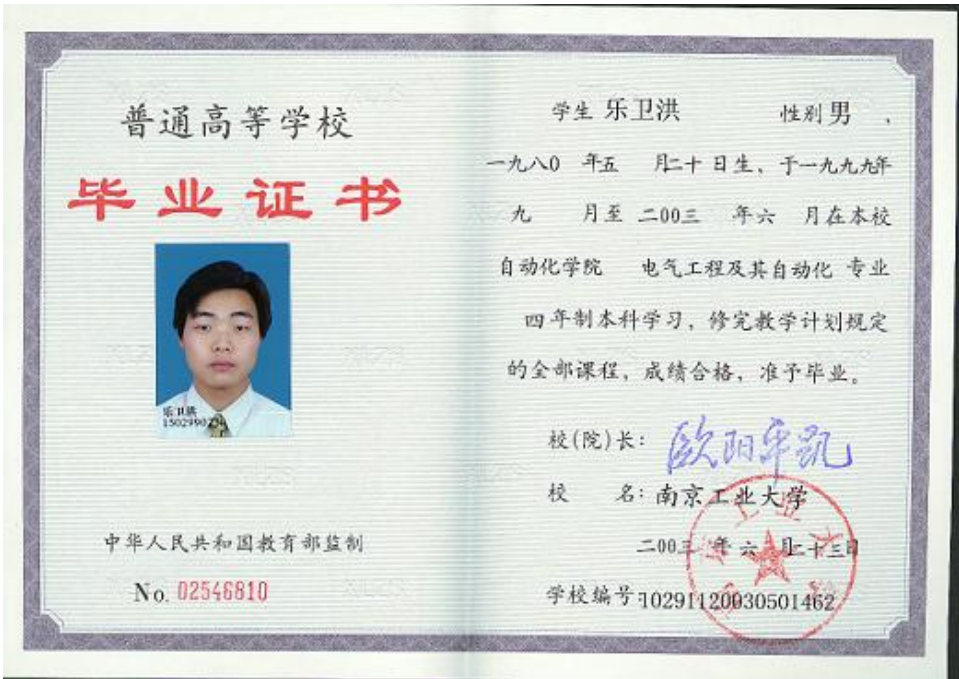 普通高等学校
毕业证书
乐卫洪
中华人民共和国教育部监制
No. 02546810
学生 乐卫洪 性别 男 ,
一九八0 年五 月二十日生、于一九九九年
九 月至 二00三 年六 月在本校
自动化学院 电气工程及其自动化 专业
四年制本科学习, 修完教学计划规定
的全部课程, 成绩合格, 准予毕业。
校(院)长: 欧阳平凯
校 名: 南京工业大学
二00三 年 六 月二十三日
学校编号: 102911200305014​62